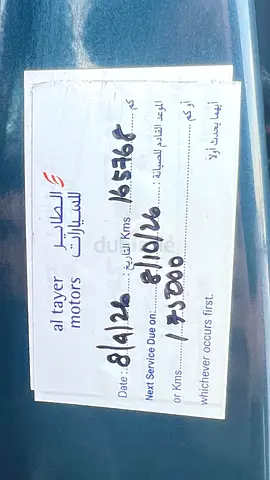 al tayer الطاير
motors للسيارات
Date : 8/9/26 التاريخ : Kms 165768 كم
Next Service Due on: 8/10/26 الموعد القادم للصيانة :
or Kms 175000 أو كم
whichever occurs first. أيهما يحدث أولاً